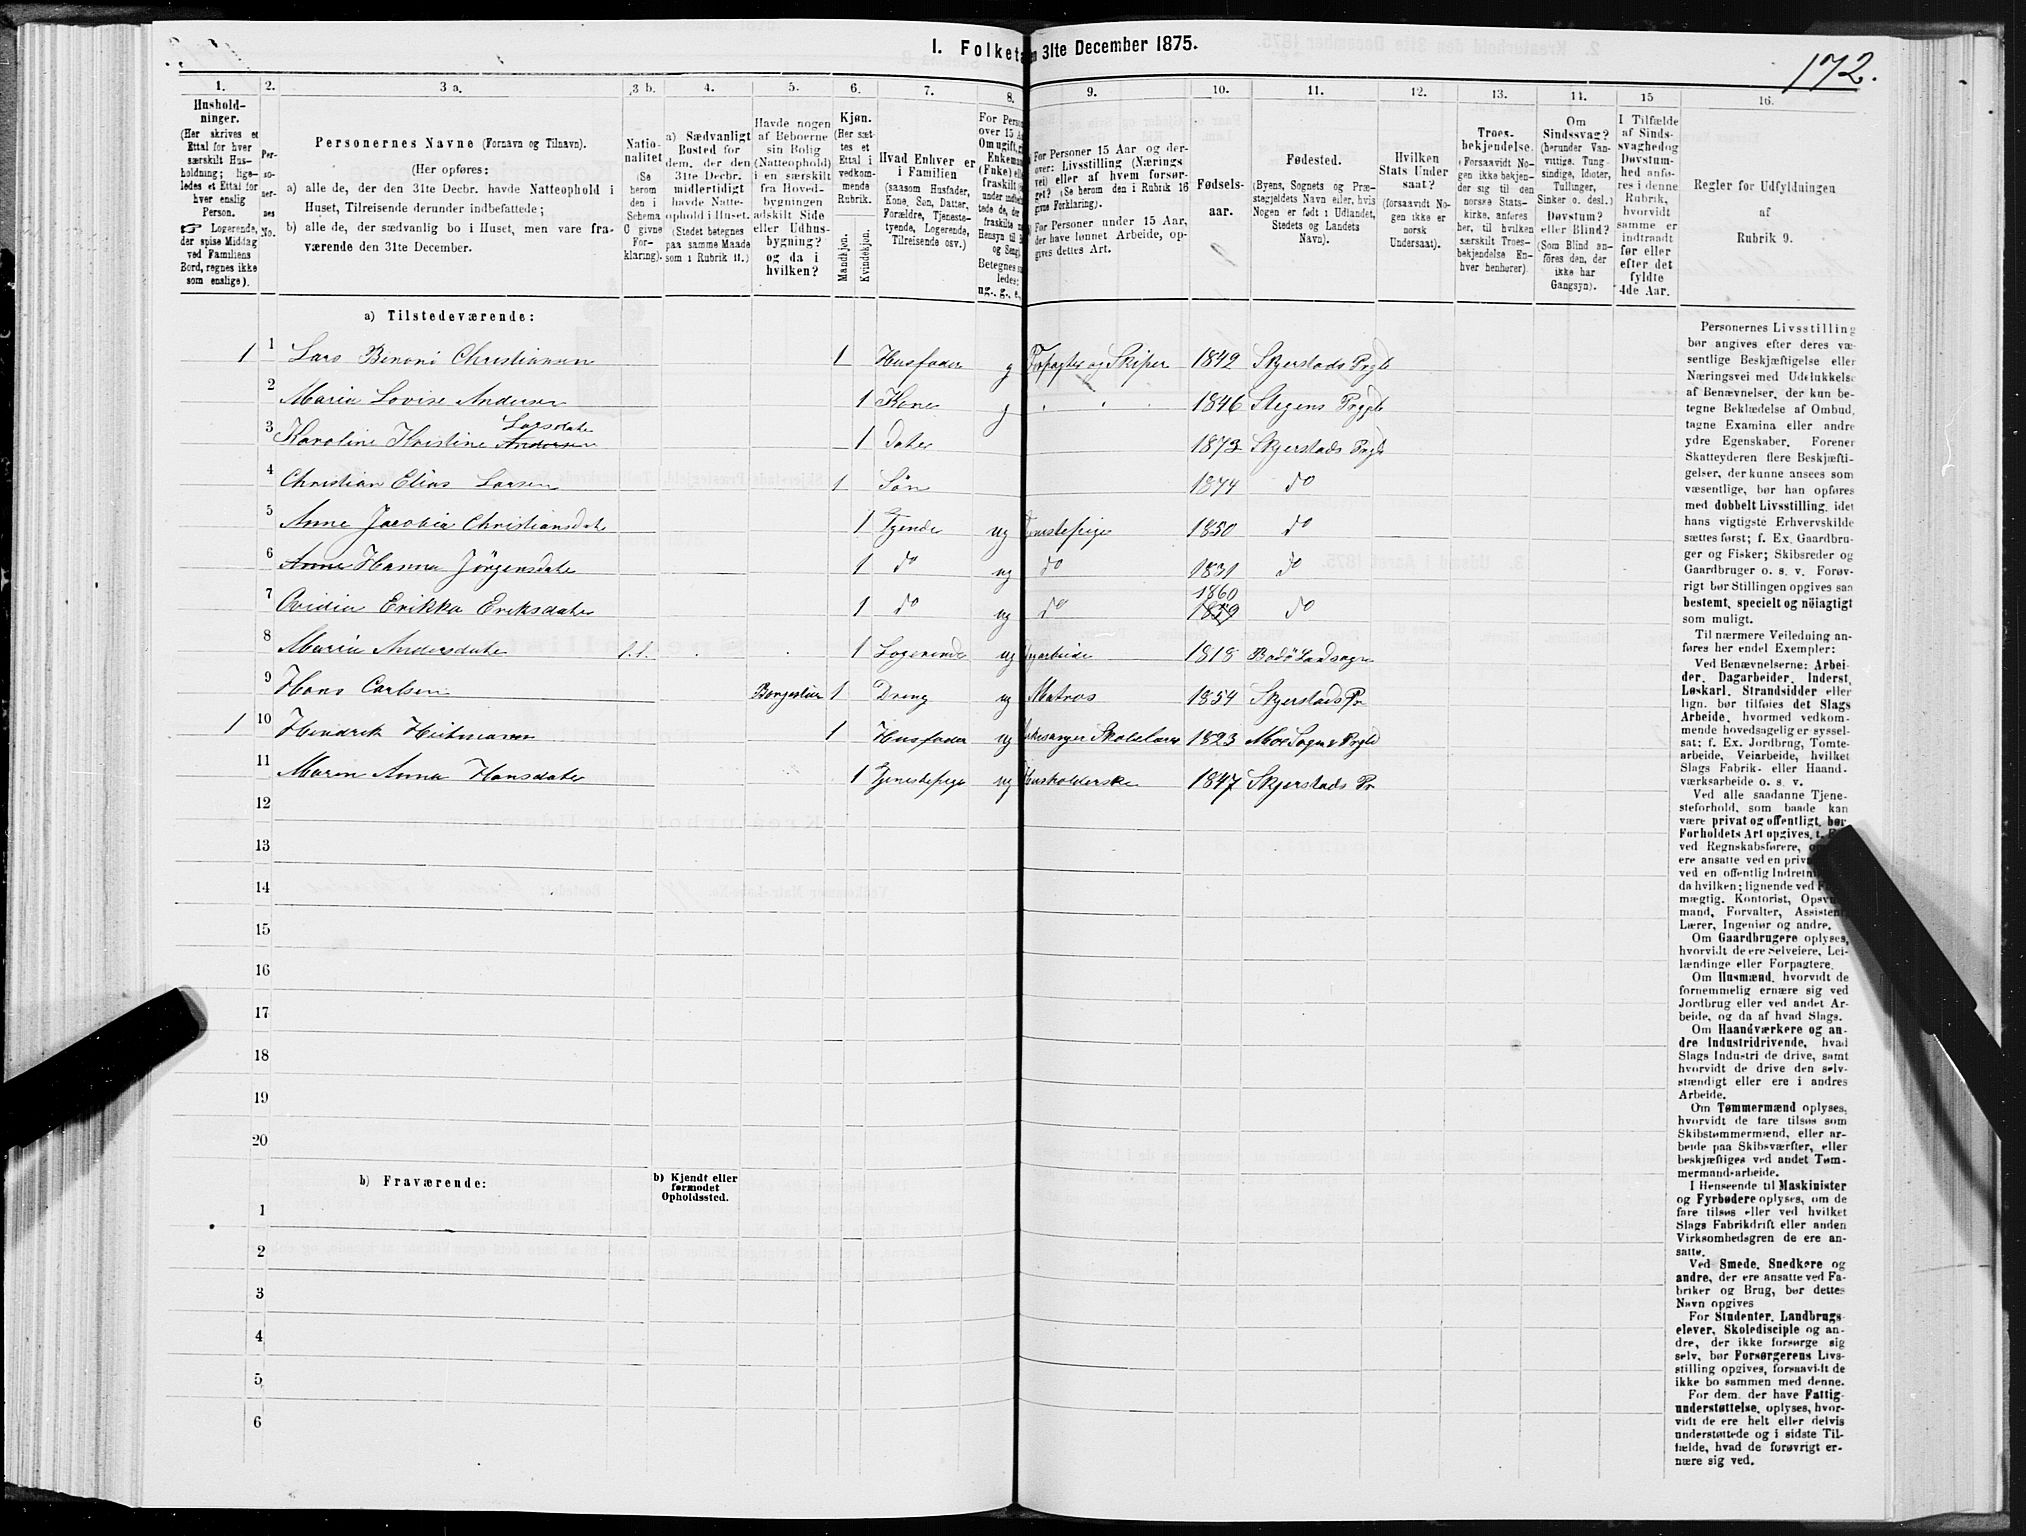 1. Folketæ
n 31te December 1875.
172.
1.
2.
3 a.
3 b.
4.
5.
6.
7.
8.
9.
10.
11.
12.
13.
14.
15
16.
Hushold-
ninger.
(Her skrives et
Ettal for hver
særskilt Hus-
holdning; lige-
ledes et Ettal for
hver enslig
Person.
☞ Logerende,
der spise Middag
ved Familiens
Bord, regnes ikke
som enslige).
Per-
so-
ner-
nes
No.
Personernes Navne (Fornavn og Tilnavn).
(Her opføres:
a) alle de, der den 31te Decbr. havde Natteophold i
Huset, Tilreisende derunder indbefattede;
b) alle de, der sædvanlig bo i Huset, men vare fra-
værende den 31te December.
Natio-
nalitet
(Se
herom
den i
Schema
C givne
For-
klaring).
a) Sædvanligt
Bosted for
dem, der den
31te Decbr.
midlertidigt
havde Natte-
ophold i Huset.
(Stedet betegnes
paa samme Maade
som i Rubrik 11.)
Havde nogen
af Beboerne
sin Bolig
(Natteophold)
i en særskilt
fra Hoved-
bygningen
adskilt Side
eller Udhus-
bygning?
og da i
hvilken?
Kjøn.
(Her sæt-
tes et
Ettal i
vedkom-
mende
Rubrik.
Mandkjøn.
Kvindekjøn.
Hvad Enhver er
i Familien
(saasom Husfader,
Kone, Søn, Datter,
Forældre, Tjeneste-
tyende, Logerende,
Tilreisende osv.)
For Person
over 15 Aa
Om ugift, g
Enkemand
(Fnke) el
fraskilt
Betegnes s
ledes:
ug., g., e.,
For Personer 15 Aar og der-
over: Livsstilling (Nærings
vei) eller af hvem forsør-
get? (Se herom den i Rubrik 16
givne Forklaring).
For Personer under 15 Aar,
der have lønnet Arbeide, op-
gives dettes Art.
Fødsels-
aar.
Fødested.
(Byens, Sognets og Præ-
stegjeldets Navn eller, hvis
Nogen er født i Udlandet,
Stedets og Landets
Navn).
Hvilken
Stats Under
saat?
(forsaavidt No-
gen ikke er
norsk
Undersaat).
Troes-
bekjendelse.
(Forsaavidt No-
gen ikke bekjen-
der sig til den
norske Stats-
kirke, anføres
her, til hvilken
særskilt Troes-
bekjendelse En-
hver henhører).
Om
Sindssvag?
(herunder Van-
vittige, Tung-
sindige, Idioter,
Tullinger,
Sinker o. desl.)
Døvstum?
eller Blind?
(Som Blind an-
føres den, der
ikke har
Gangsyn).
I Tilfælde
af Sinds-
svaghed og
Døvstum-
hed anfø-
res i denne
Rubrik,
hvorvidt
samme er
indtraadt
før eller
efter det
fyldte
4de Aar.
Regler for Udfyldningen
af
Rubrik 9.
a) Tilstedeværende:
1 1 Lars Benoni Christiansen 1 Husfader g Forpagter og Skiper 1842 Skjerstads Prgld
2 Maria Lovise Andersen 1 Kone g 1846 Stegens Prgjld
Larsdater
3 Karoline Kristine Andersen 1 dater 1873 Skjerstads Prgld
4 Christian Elias Larsen 1 Søn 1874 do
5 Anne Jacobia Christiansdater 1 Tyende ug Tjenestepige 1850 do
6 Anne Hanna Jörgensdater 1 do ug do 1831 do
1860
7 Ovidia Erikka Eriksdater 1 do ug do 1859 do
8 Maria Andersdater f.f. 1 Logerende ug 1818 Bodö Landsogn
9 Hans Carlsen Borgestuen 1 Dreng ug Matros 1854 Skjerstads Pr
1 10 Hendrik Heitmann 1 Husfader ug Kirkesanger Skolelærer 1823 Moe Sogns Prgld
11 Maren Anna Hansdater 1 Tjenestepige ug Husholderske 1847 Skjerstads Pr
12
13
14
15
16
17
18
19
20
b) Fraværende:
b) Kjendt eller
formodet
Opholdssted.
1
2
3
4
5
6
Personernes Livsstilling
bør angives efter deres væ-
sentlige Beskjæftigelse eller
Næringsvei med Udelukkelse
af Benævnelser, der kun be-
tegne Beklædelse af Ombud,
tagne Examina eller andre
ydre Egenskaber. Forener
Skatteyderen flere Beskjæfti-
gelser, der kunne ansees som
væsentlige, bør han opføres
med dobbelt Livsstilling, idet
hans vigtigste Erhvervskilde
sættes først; f. Ex. Gaardbru-
ger og Fisker; Skibsreder og
Gaardbruger o. s. v. Forøv-
rigt bør Stillingen opgives saa
bestemt, specielt og nøiagtigt
som muligt.
Til nærmere Veiledning an-
føres her endel Exempler:
Ved Benævnelserne: Arbei-
der, Dagarbeider, Inderst,
Løskarl, Strandsidder eller
lign. bør tilføies det Slags
Arbeide, hvormed vedkom-
mende hovedsagelig er syssel-
sat; f. Ex. Jordbrug, Tomte-
arbeide, Veiarbeide, hvilket
Slags Fabrik- eller Haand-
værksarbeide o. s. v.
Ved alle saadanne Tjene-
steforhold, som baade kan
være privat og offentligt, bør
Forholdets Art opgives, t. E
ved Regnskabsførere,
ere ansatte ved en priva
ved en offentlig Indretn
da hvilken; lignende ved F
mægtig, Kontorist, Opsyn
mand, Forvalter, Assistent,
Lærer, Ingeniør og andre.
Om Gaardbrugere oplyses,
hvorvidt de ere Selveiere, Lei-
lændinge eller Forpagtere.
Om Husmænd, hvorvidt de
fornemmelig ernære sig ved
Jordbrug eller ved andet Ar-
beide, og da af hvad Slags.
Om Haandværkere og an-
dre Industridrivende, hvad
Slags Industri de drive, samt
hvorvidt de drive den selv-
stændigt eller ere i andres
Arbeide.
Om Tømmermænd oplyses,
hvorvidt de fare tilsøs som
Skibstømmermænd, eller ar-
beide paa Skibsværfter, eller
beskjæftiges ved andet Tøm-
mermandarbeide.
I Henseende til Maskinister
og Fyrbødere oplyses, om de
fare tilsøs eller ved hvilket
Slags Fabrikdrift eller anden
Virksomhedsgren de ere an-
satte.
Ved Smede, Snedkere og
andre, der ere ansatte ved Fa-
briker og Brug, bør dettes
Navn opgives
For Studenter, Landbrugs-
elever, Skoledisciple og an-
dre, der ikke forsørge sig
selv, bør Forsørgerens Livs-
stilling opgives, forsaavidt de
ikke bo sammen med denne.
For dem, der have Fattig-
understøttelse, oplyses, hvor-
vidt de ere helt eller delvis
understøttede og i sidste Til-
fælde, hvad de forøvrigt er-
nære sig ved.